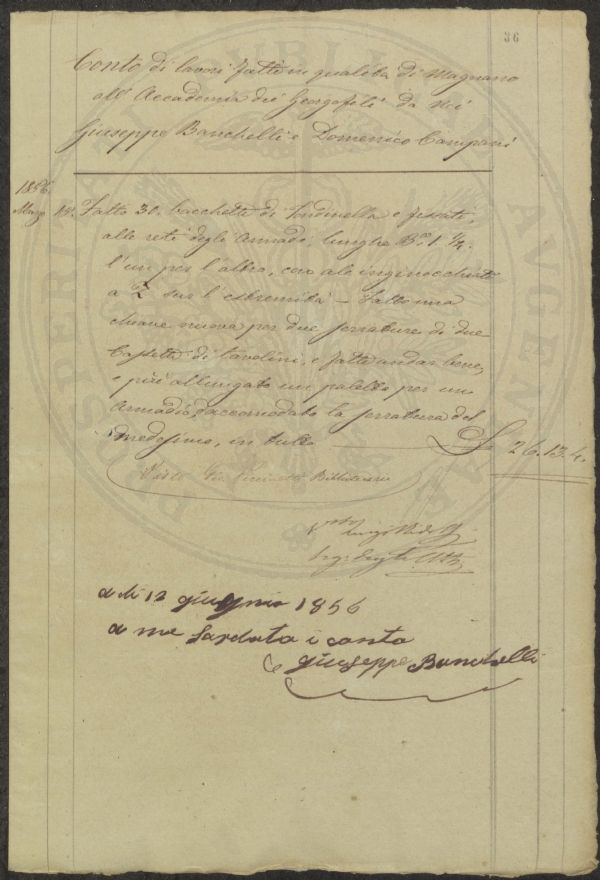 36
Conto di lavori fatti in qualità di Magnano
all' Accademia dei Georgofili da Noi
Giuseppe Banchelli e Domenico Campani
1856.
Marzo 15. Fatto 30. bacchette di Tondinella e fissati
alle reti degli Armadi, lunghe B.a 1 1/4.
l'un per l'altra, con ale inginocchiate
a Z sur l'estremità – Fatto una
chiave nuova per due serrature di due
Cassette di Tavolini, e fatte andar bene,
e più allungato un paletto per un
Armadio, e accomodato la serratura del
medesimo, in tutto L 26.13.4.
Visto Bibliotecario
Luigi
Segr. degli Atti
a dì 12 giugnio 1856
a me Sardata i conto
Giuseppe Banchelli
PROSPERITATI PUBLICAE AUGENDAE